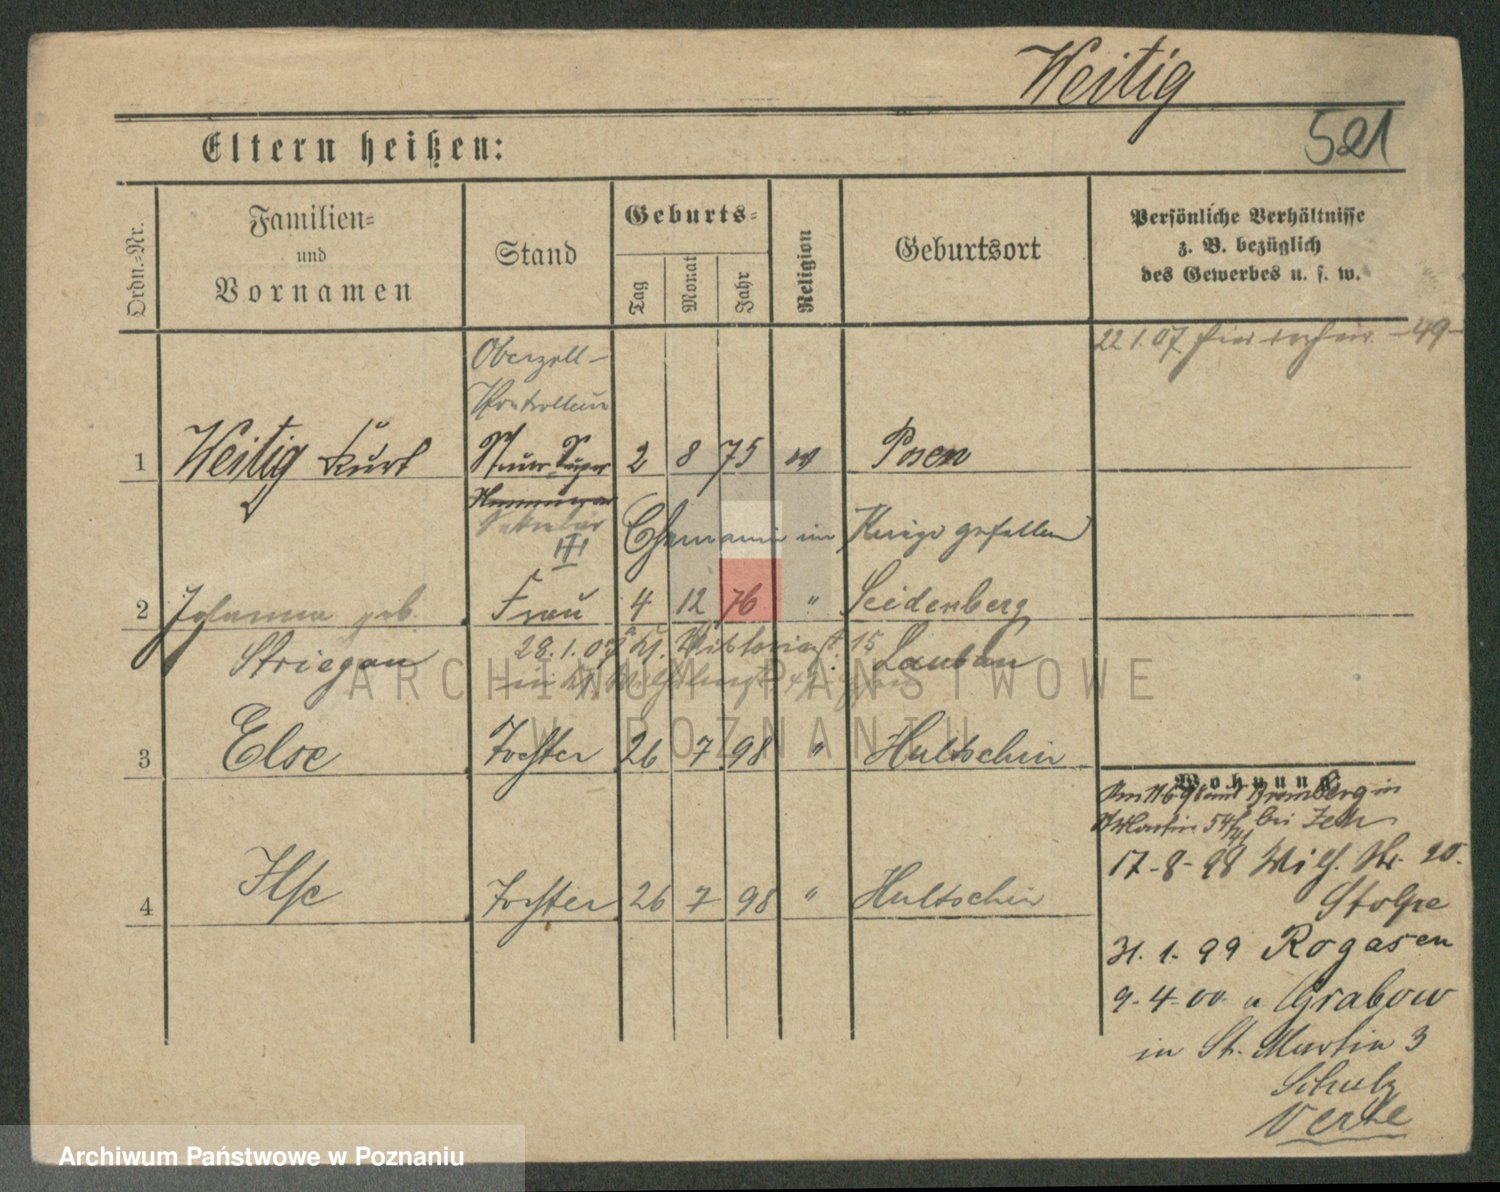 Weitig
521
Eltern heißen:
Ordn.-Nr.
Familien-
und
Vornamen
Stand
Geburts-
Tag
Monat
Jahr
Religion
Geburtsort
Persönliche Verhältnisse
z. B. bezüglich
des Gewerbes u. s. w.
22 1. 07. hier -49-
Oberzoll-
Kontrolleur
1 Weitig Kurt Steuer Super 2 8 75 ev Posen
Sekretär
III
im Kriege gefallen
2 Johanna geb. Frau 4 12 76 " Seidenberg
Striegan 28. 1. 07 Viktoriast. 15 Lauban
3 Else Tochter 26 7 98 " Hultschin
4 Ilse Tochter 26 7 98 " Hultschin
Wohnung
Bromberg in
St Martin 54 bei
17-8-98 Wilh. Str. 20.
Stolpe
31. 1. 99 Rogasen
9. 4. 00 Grabow
in St. Martin 3
Schulz
Verte
ARCHIWUM PAŃSTWOWE
W POZNANIU
Archiwum Państwowe w Poznaniu